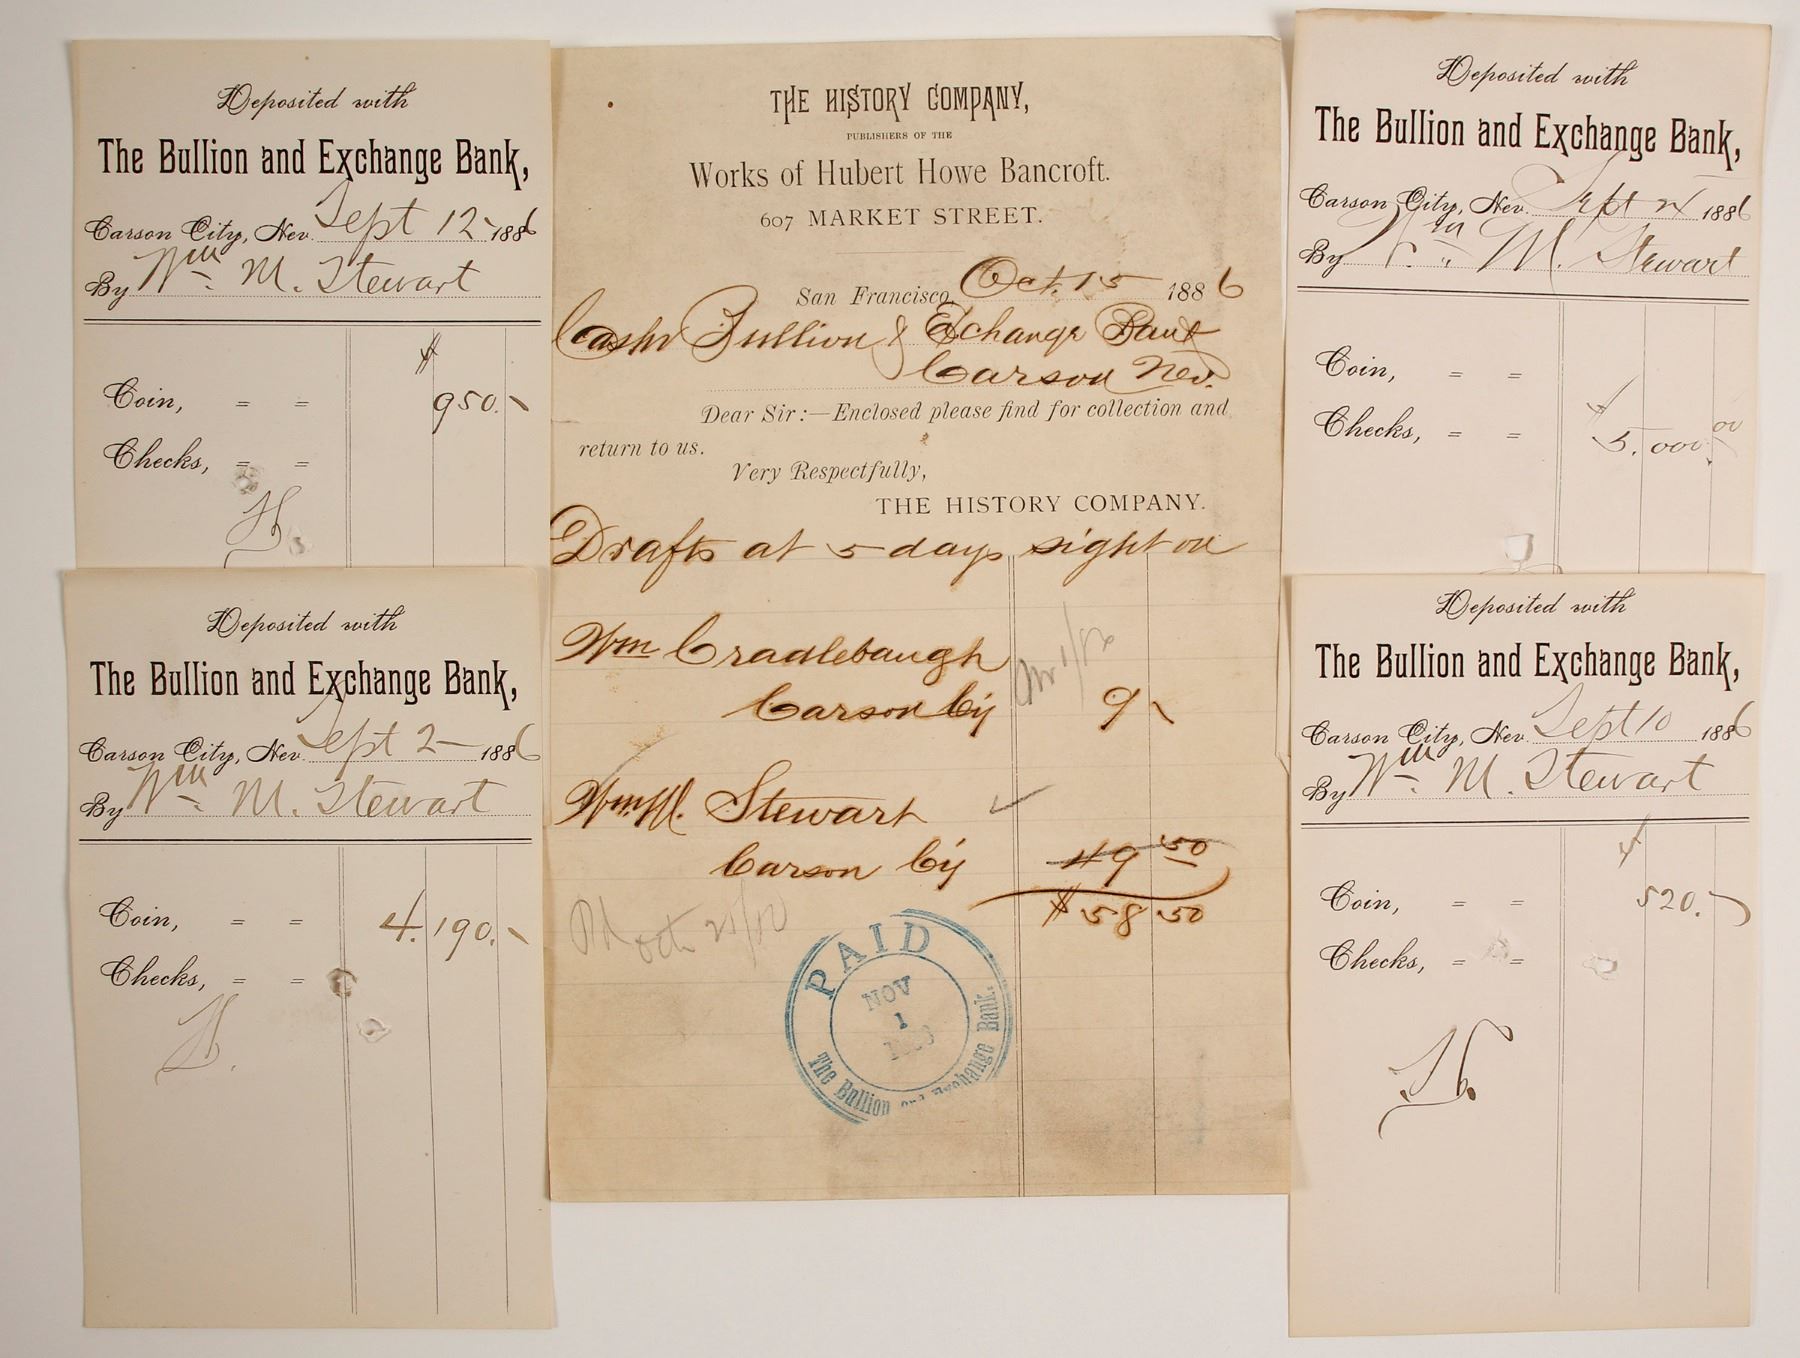 Deposited with
The Bullion and Exchange Bank,
Carson City, Nev. Sept 12 1886
By Wm. M. Stewart
$
Coin, = = 950.
Checks, = =
Deposited with
The Bullion and Exchange Bank,
Carson City, Nev. Sept 2 1886
By Wm. M. Stewart
Coin, = = 4.190.
Checks, = =
THE HISTORY COMPANY,
PUBLISHERS OF THE
Works of Hubert Howe Bancroft.
607 MARKET STREET.
San Francisco, Oct. 15 1886
Cashr Bullion & Exchange Bank
Carson Nev.
Dear Sir:—Enclosed please find for collection and
return to us.
Very Respectfully,
THE HISTORY COMPANY.
Drafts at 5 days sight on
Wm Cradlebaugh
Carson Cy 9
Wm. M. Stewart
Carson Cy 49 50
$ 58 50
Pd Oct
PAID
NOV
1
The Bullion and Exchange Bank.
Deposited with
The Bullion and Exchange Bank,
Carson City, Nev. Sept 1886
By Wm. M. Stewart
Coin, = =
$
Checks, = = 5.000.00
Deposited with
The Bullion and Exchange Bank,
Carson City, Nev. Sept 10 1886
By Wm. M. Stewart
$
Coin, = = 520.
Checks, = =